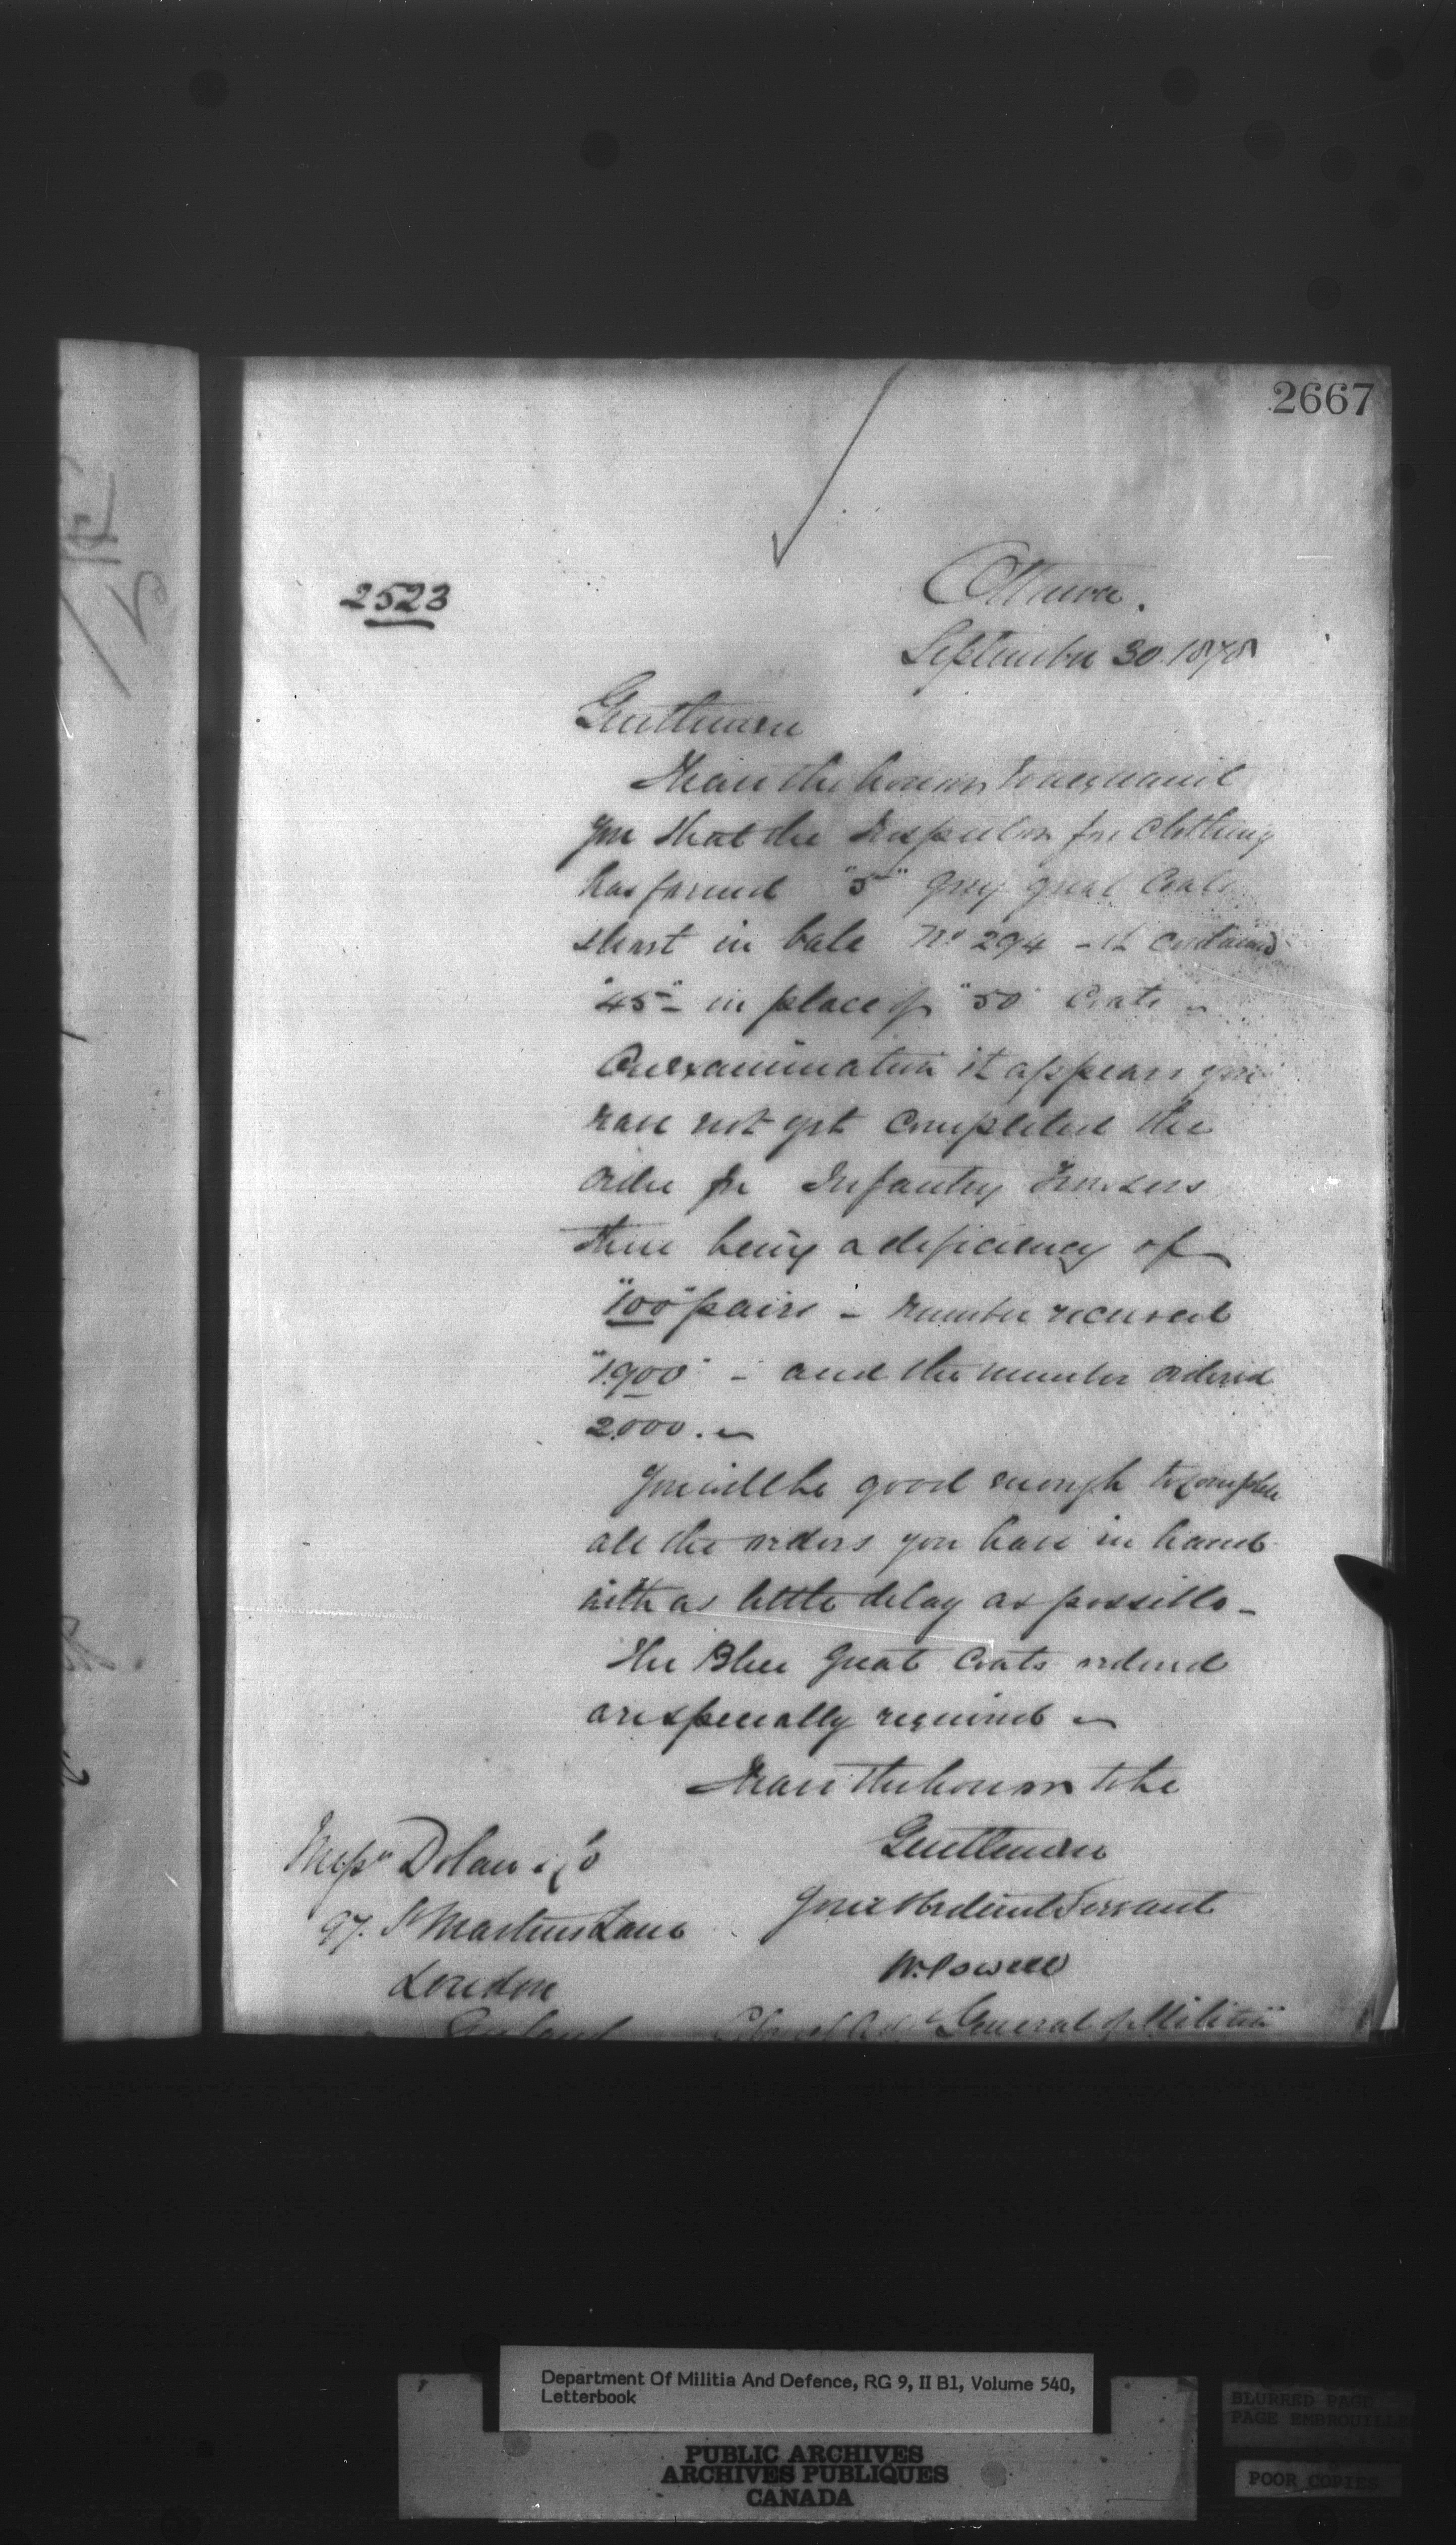 2667
2523
Ottawa.
September 30. 1878
Gentlemen
I have the honor to acquaint
you that the Inspector for Clothing
has found "5" Grey great Coats
short in bale No 294 - it contained
"45" - in place of "50" Coats -
On examination it appears you
have not yet completed the
order for Infantry Trousers
there being a deficiency of
"100" pairs - number received
"1900" - and the number ordered
2000. -
You will be good enough to complete
all the orders you have in hand
with as little delay as possible -
The Blue Great Coats ordered
are specially required -
I have the honor to be
Gentlemen
Your Obedient Servant
W. Powell
Colonel Adjt General of Militia
Messrs Dolan & Co
97. St Martins Lane
London
England
Department Of Militia And Defence, RG 9, II B1, Volume 540,
Letterbook
PUBLIC ARCHIVES
ARCHIVES PUBLIQUES
CANADA
BLURRED PAGE
PAGE EMBROUILLEE
POOR COPIES